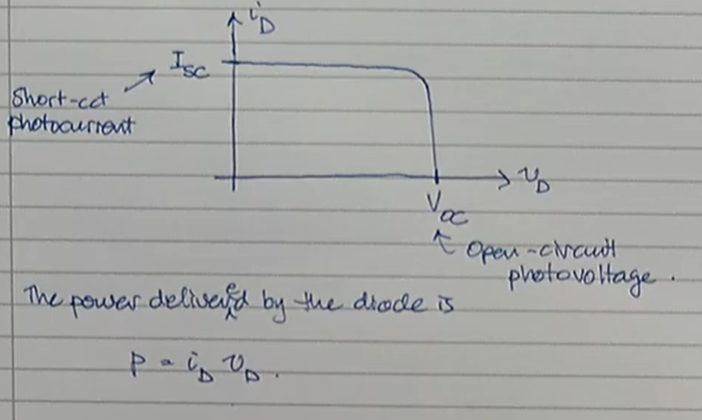 i_D
I_SC
Short-cct
photocurrent
v_D
V_OC
Open-circuit
photovoltage.
The power delivered by the diode is
P = i_D v_D.